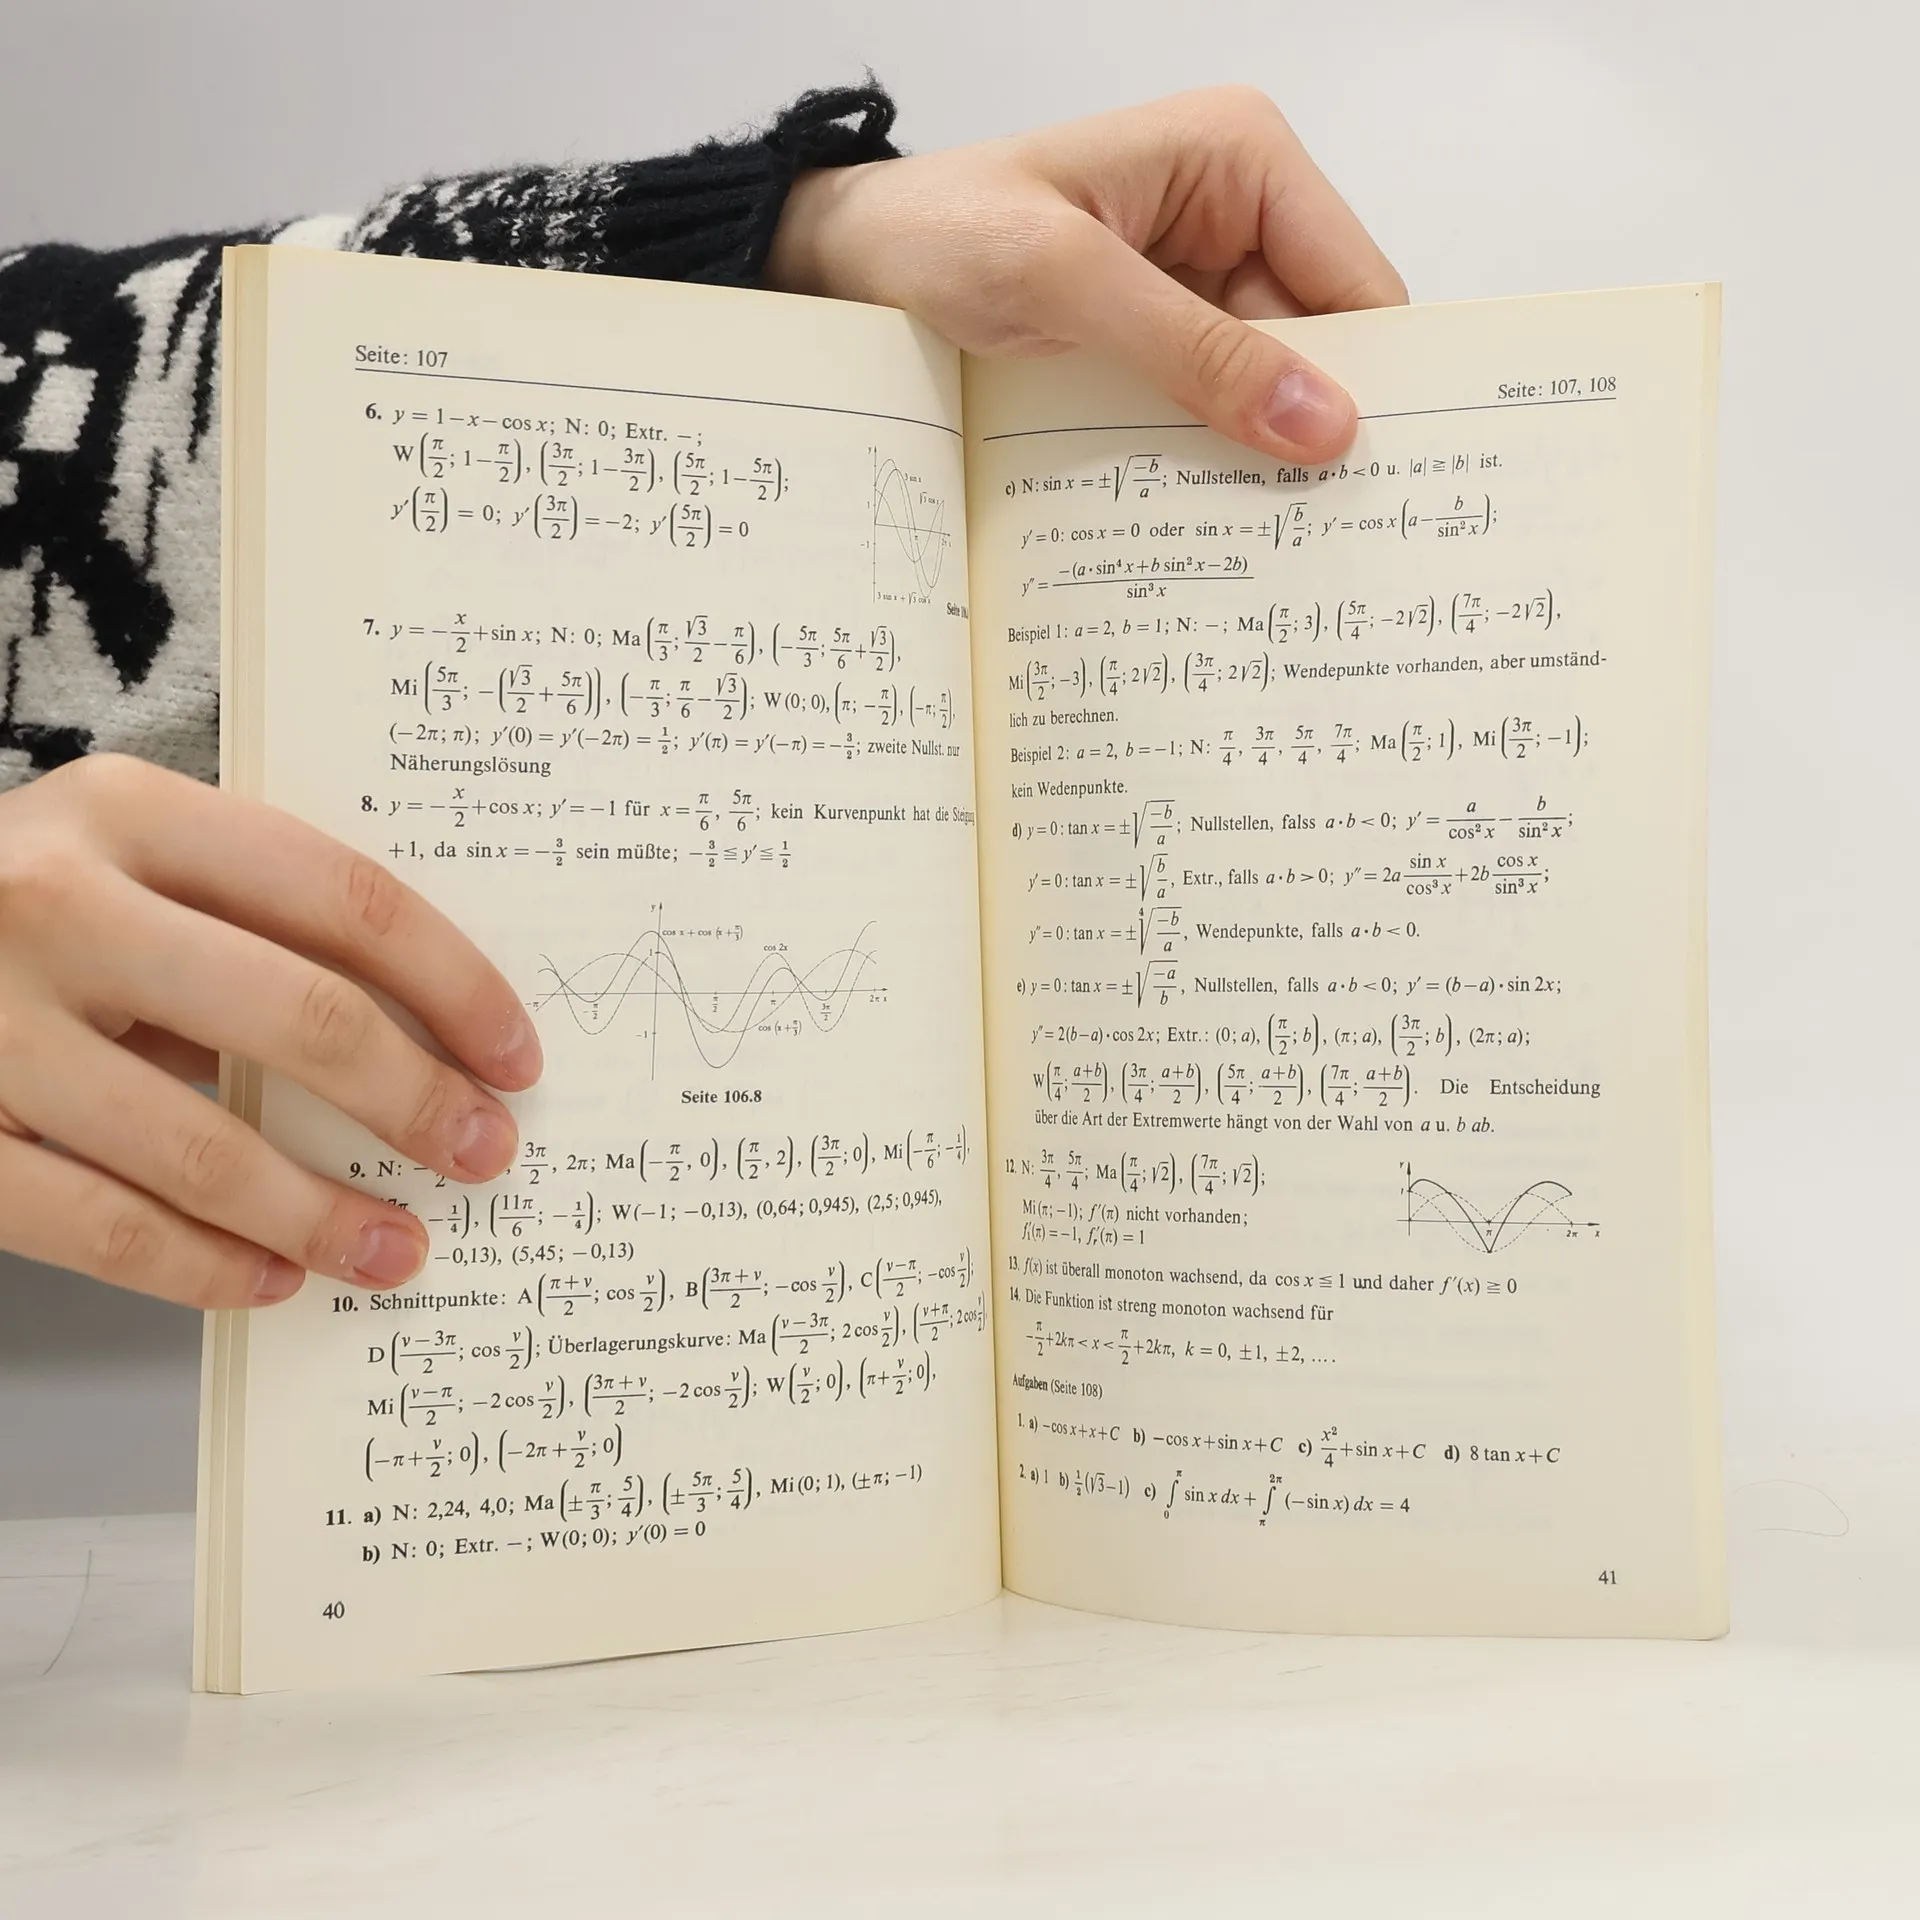 Seite: 107
6. y = 1−x−cos x; N: 0; Extr. −;
W(π/2; 1−π/2), (3π/2; 1−3π/2), (5π/2; 1−5π/2);
y′(π/2) = 0; y′(3π/2) = −2; y′(5π/2) = 0
y
1
−1
3 sin x
√3 cos x
π
2π x
3 sin x + √3 cos x
Seite
7. y = −x/2 + sin x; N: 0; Ma(π/3; √3/2 − π/6), (−5π/3; 5π/6 + √3/2),
Mi(5π/3; −(√3/2 + 5π/6)), (−π/3; π/6 − √3/2); W(0; 0), (π; −π/2), (−π; π/2),
(−2π; π); y′(0) = y′(−2π) = ½; y′(π) = y′(−π) = −3/2; zweite Nullst. nur
Näherungslösung
8. y = −x/2 + cos x; y′ = −1 für x = π/6, 5π/6; kein Kurvenpunkt hat die Steigung
+1, da sin x = −3/2 sein müßte; −3/2 ≦ y′ ≦ ½
y
cos x + cos (x + π/3)
cos 2x
1
−π
−π/2
π/2
π
3π/2
2π x
cos (x + π/3)
−1
Seite 106.8
9. N: − 2 , 3π/2, 2π; Ma(−π/2, 0), (π/2, 2), (3π/2; 0), Mi(−π/6; −¼),
−¼), (11π/6; −¼); W(−1; −0,13), (0,64; 0,945), (2,5; 0,945),
−0,13), (5,45; −0,13)
10. Schnittpunkte: A((π+v)/2; cos v/2), B((3π+v)/2; −cos v/2), C((v−π)/2; −cos v/2);
D((v−3π)/2; cos v/2); Überlagerungskurve: Ma((v−3π)/2; 2 cos v/2), ((v+π)/2; 2 cos v/2),
Mi((v−π)/2; −2 cos v/2), ((3π+v)/2; −2 cos v/2); W(v/2; 0), (π+v/2; 0),
(−π+v/2; 0), (−2π+v/2; 0)
11. a) N: 2,24, 4,0; Ma(±π/3; 5/4), (±5π/3; 5/4), Mi(0; 1), (±π; −1)
b) N: 0; Extr. −; W(0; 0); y′(0) = 0
40
Seite: 107, 108
c) N: sin x = ±√(−b/a); Nullstellen, falls a·b < 0 u. |a| ≧ |b| ist.
y′ = 0: cos x = 0 oder sin x = ±√(b/a); y′ = cos x (a − b/sin² x);
y″ = −(a·sin⁴ x + b sin² x − 2b)/sin³ x
Beispiel 1: a = 2, b = 1; N: −; Ma(π/2; 3), (5π/4; −2√2), (7π/4; −2√2),
Mi(3π/2; −3), (π/4; 2√2), (3π/4; 2√2); Wendepunkte vorhanden, aber umständ-
lich zu berechnen.
Beispiel 2: a = 2, b = −1; N: π/4, 3π/4, 5π/4, 7π/4; Ma(π/2; 1), Mi(3π/2; −1);
kein Wedenpunkte.
d) y = 0: tan x = ±√(−b/a); Nullstellen, falss a·b < 0; y′ = a/cos² x − b/sin² x;
y′ = 0: tan x = ±√(b/a), Extr., falls a·b > 0; y″ = 2a sin x/cos³ x + 2b cos x/sin³ x;
y″ = 0: tan x = ±⁴√(−b/a), Wendepunkte, falls a·b < 0.
e) y = 0: tan x = ±√(−a/b), Nullstellen, falls a·b < 0; y′ = (b−a)·sin 2x;
y″ = 2(b−a)·cos 2x; Extr.: (0; a), (π/2; b), (π; a), (3π/2; b), (2π; a);
W(π/4; (a+b)/2), (3π/4; (a+b)/2), (5π/4; (a+b)/2), (7π/4; (a+b)/2). Die Entscheidung
über die Art der Extremwerte hängt von der Wahl von a u. b ab.
12. N: 3π/4, 5π/4; Ma(π/4; √2), (7π/4; √2);
Mi(π; −1); f′(π) nicht vorhanden;
f′ₗ(π) = −1, f′ᵣ(π) = 1
Y
1
π
2π
x
13. f(x) ist überall monoton wachsend, da cos x ≦ 1 und daher f′(x) ≧ 0
14. Die Funktion ist streng monoton wachsend für
−π/2 + 2kπ < x < π/2 + 2kπ, k = 0, ±1, ±2, ....
Aufgaben (Seite 108)
1. a) −cos x + x + C b) −cos x + sin x + C c) x²/4 + sin x + C d) 8 tan x + C
2. a) 1 b) ½(√3−1) c) ∫₀^π sin x dx + ∫_π^2π (−sin x) dx = 4
41